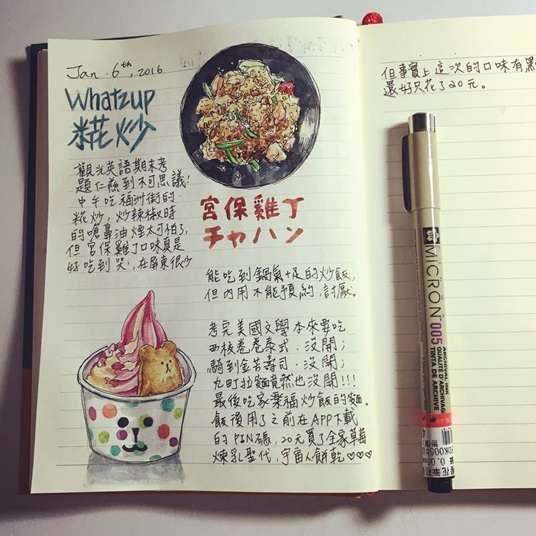 Jan. 6th, 2016
Whatzup
糀炒
觀光英語期末考
題仁慈到不可思議!
中午吃福洲街的
糀炒,炒辣椒時
的嗆鼻油煙太可怕了,
但宮保雞丁口味真是
好吃到哭!在屏東很少
宮保雞丁
チャハン
能吃到鍋氣十足的炒飯,
但內用不能預約,討厭。
考完美國文學本來要吃
西板卷卷泰式,沒開;
騎到金芳壽司,沒開;
九町拉麵竟然也沒開!!!
最後吃家樂福炒飯的麵。
飯後用了之前在APP下載
的PIN碼,20元買了全家草莓
煉乳聖代,宇宙人餅乾♡♡♡
但事實上這次的口味有點
還好只花了20元。
MICRON 005
TINTA DE ARCHIVE